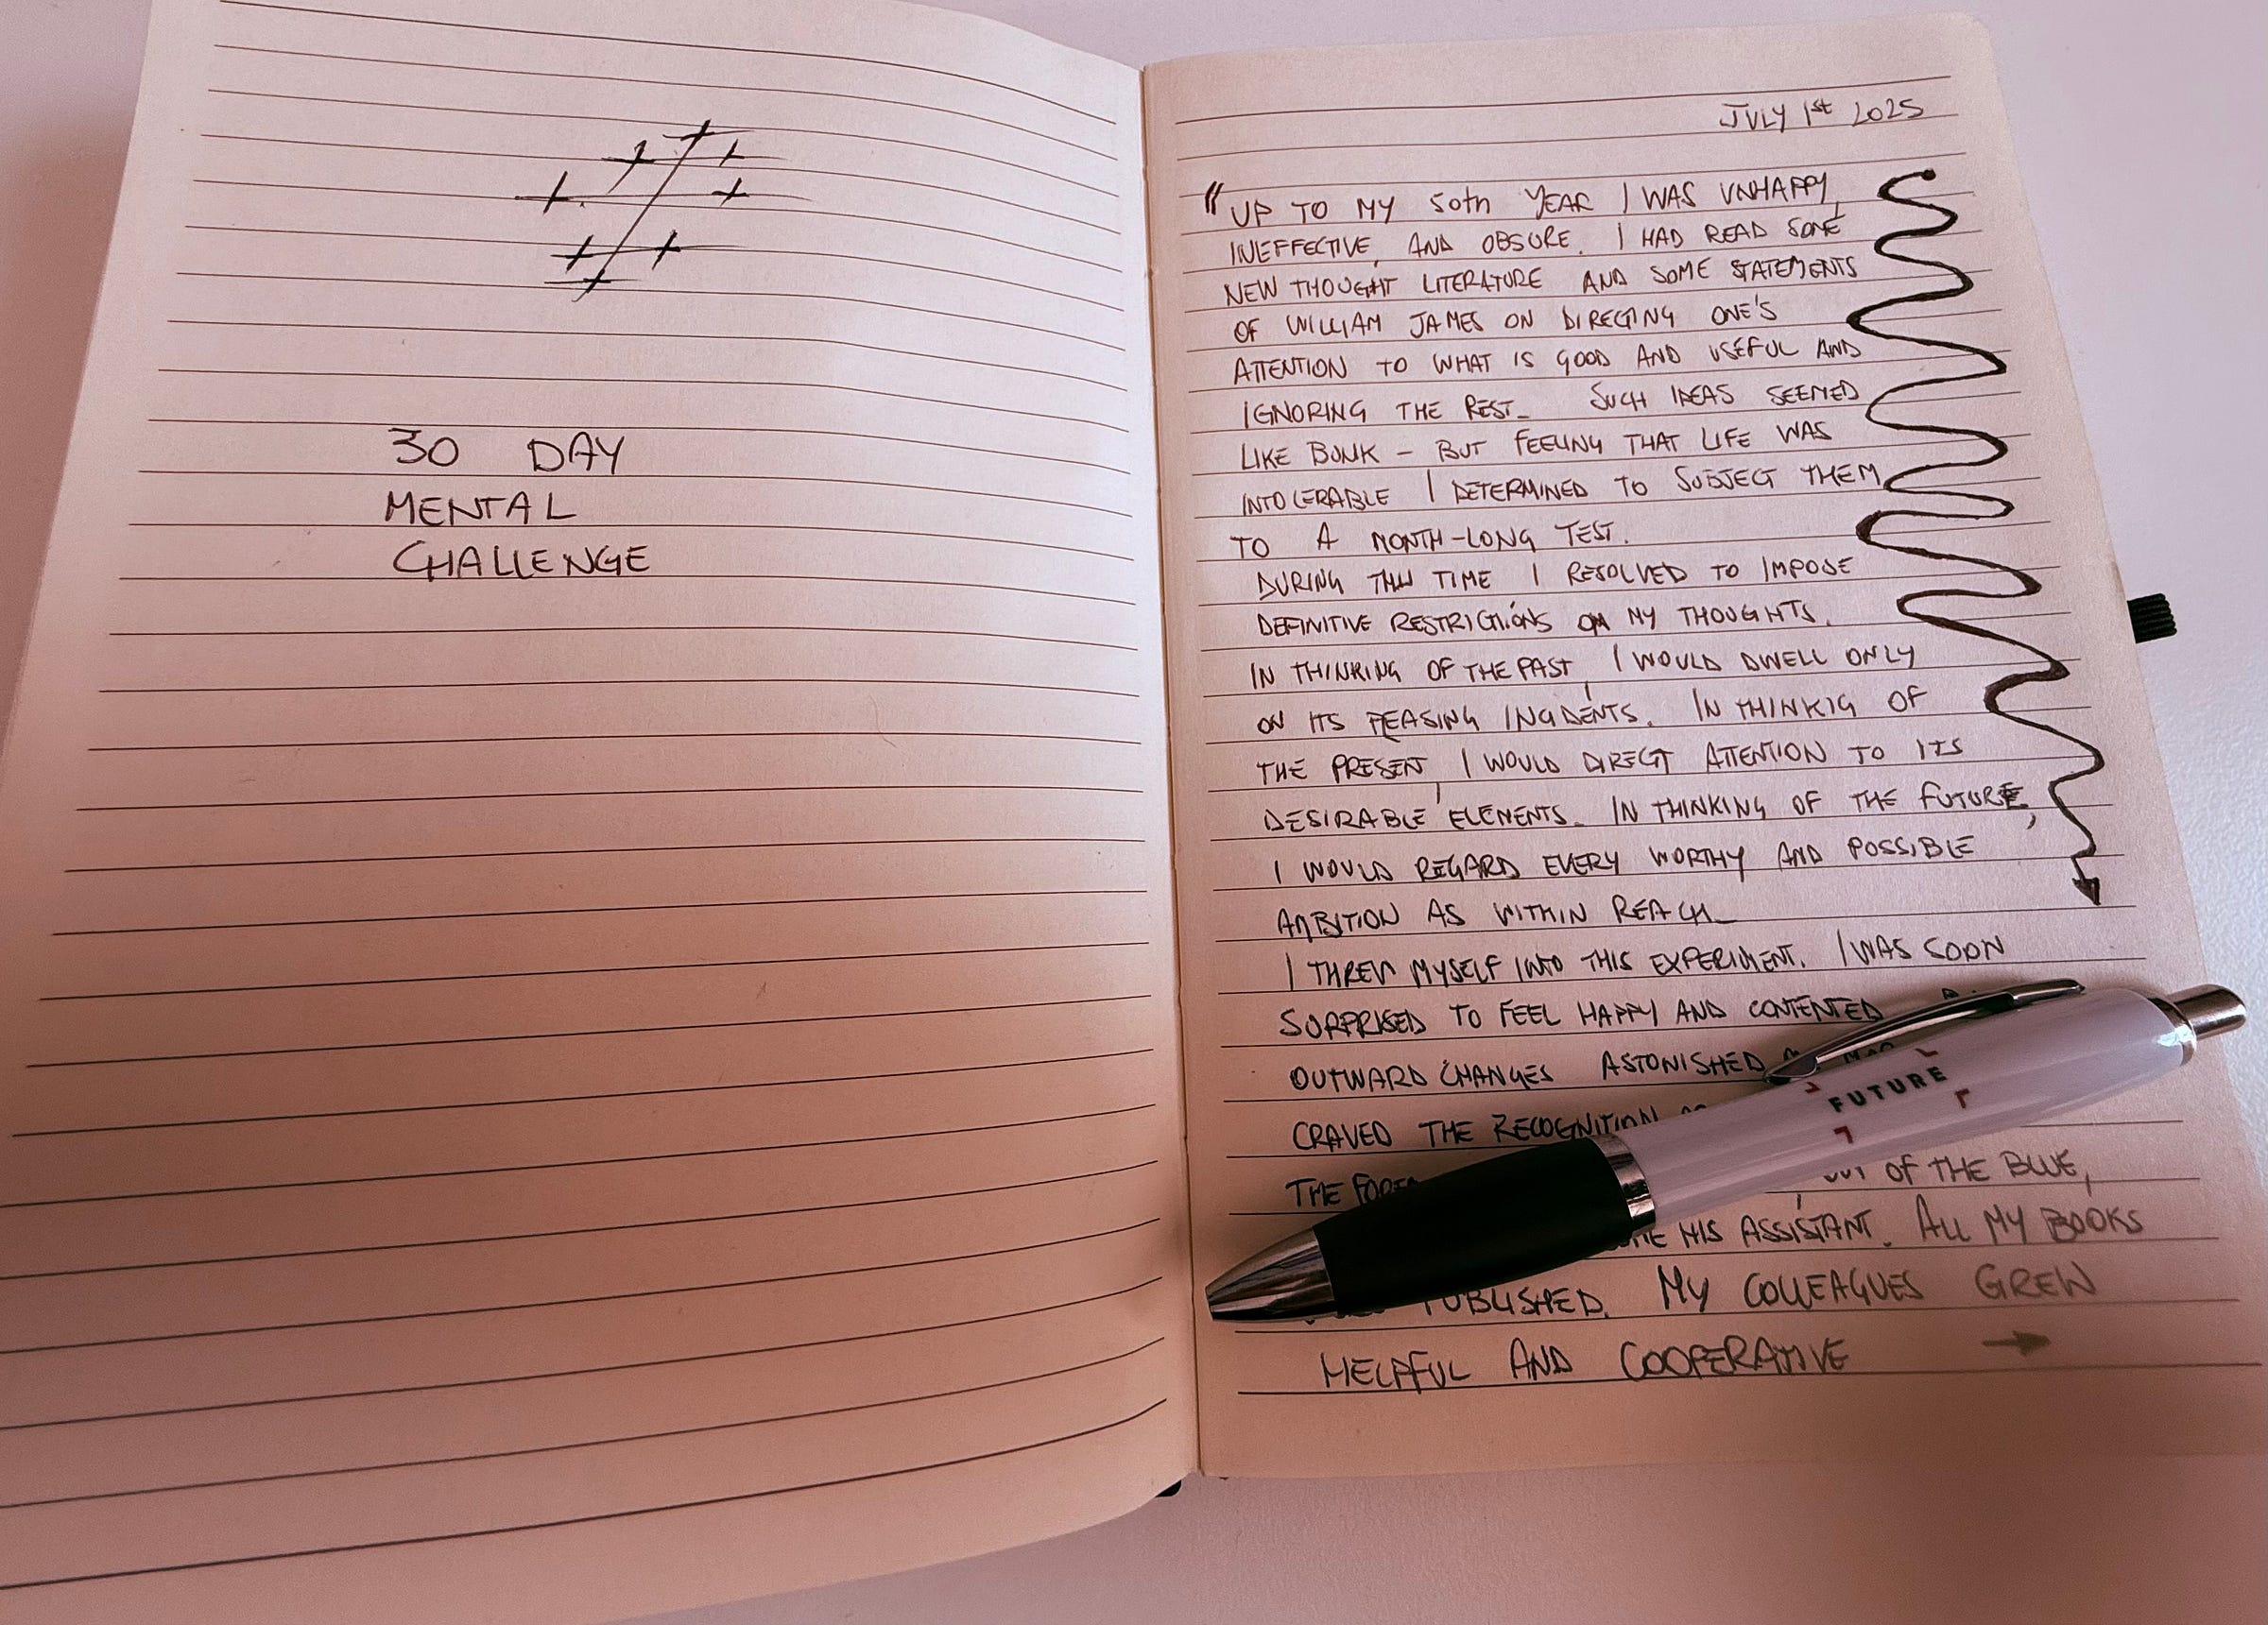 30 DAY
MENTAL
CHALLENGE
JULY 1st 2025
"UP TO MY 50th YEAR I WAS UNHAPPY,
INEFFECTIVE, AND OBSURE. I HAD READ SOME
NEW THOUGHT LITERATURE AND SOME STATEMENTS
OF WILLIAM JAMES ON DIRECTING ONE'S
ATTENTION TO WHAT IS GOOD AND USEFUL AND
IGNORING THE REST. SUCH IDEAS SEEMED
LIKE BUNK - BUT FEELING THAT LIFE WAS
INTOLERABLE I DETERMINED TO SUBJECT THEM
TO A MONTH-LONG TEST.
DURING THIS TIME I RESOLVED TO IMPOSE
DEFINITIVE RESTRICTIONS ON MY THOUGHTS.
IN THINKING OF THE PAST, I WOULD DWELL ONLY
ON ITS PLEASING INCIDENTS. IN THINKIG OF
THE PRESENT, I WOULD DIRECT ATTENTION TO ITS
DESIRABLE ELEMENTS. IN THINKING OF THE FUTURE,
I WOULD REGARD EVERY WORTHY AND POSSIBLE
AMBITION AS WITHIN REACH.
I THREW MYSELF INTO THIS EXPERIMENT. I WAS SOON
SURPRISED TO FEEL HAPPY AND CONTENTED
OUTWARD CHANGES ASTONISHED
CRAVED THE RECOGNITION
THE OUT OF THE BLUE,
HIS ASSISTANT. ALL MY BOOKS
PUBLISHED. MY COLLEAGUES GREW
HELPFUL AND COOPERATIVE →
FUTURE